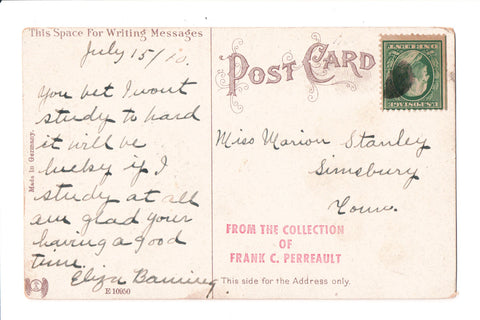 This Space For Writing Messages
July 15/10.
You bet I wont
study to hard
it will be
lucky if I
study at all
am glad your
having a good
time.
Eliza
Made in Germany.
E 10950
POST CARD
ONE CENT
U.S. POSTAGE
Miss Marion Stanley
Simsbury
Conn.
FROM THE COLLECTION
OF
FRANK C. PERREAULT
This side for the Address only.